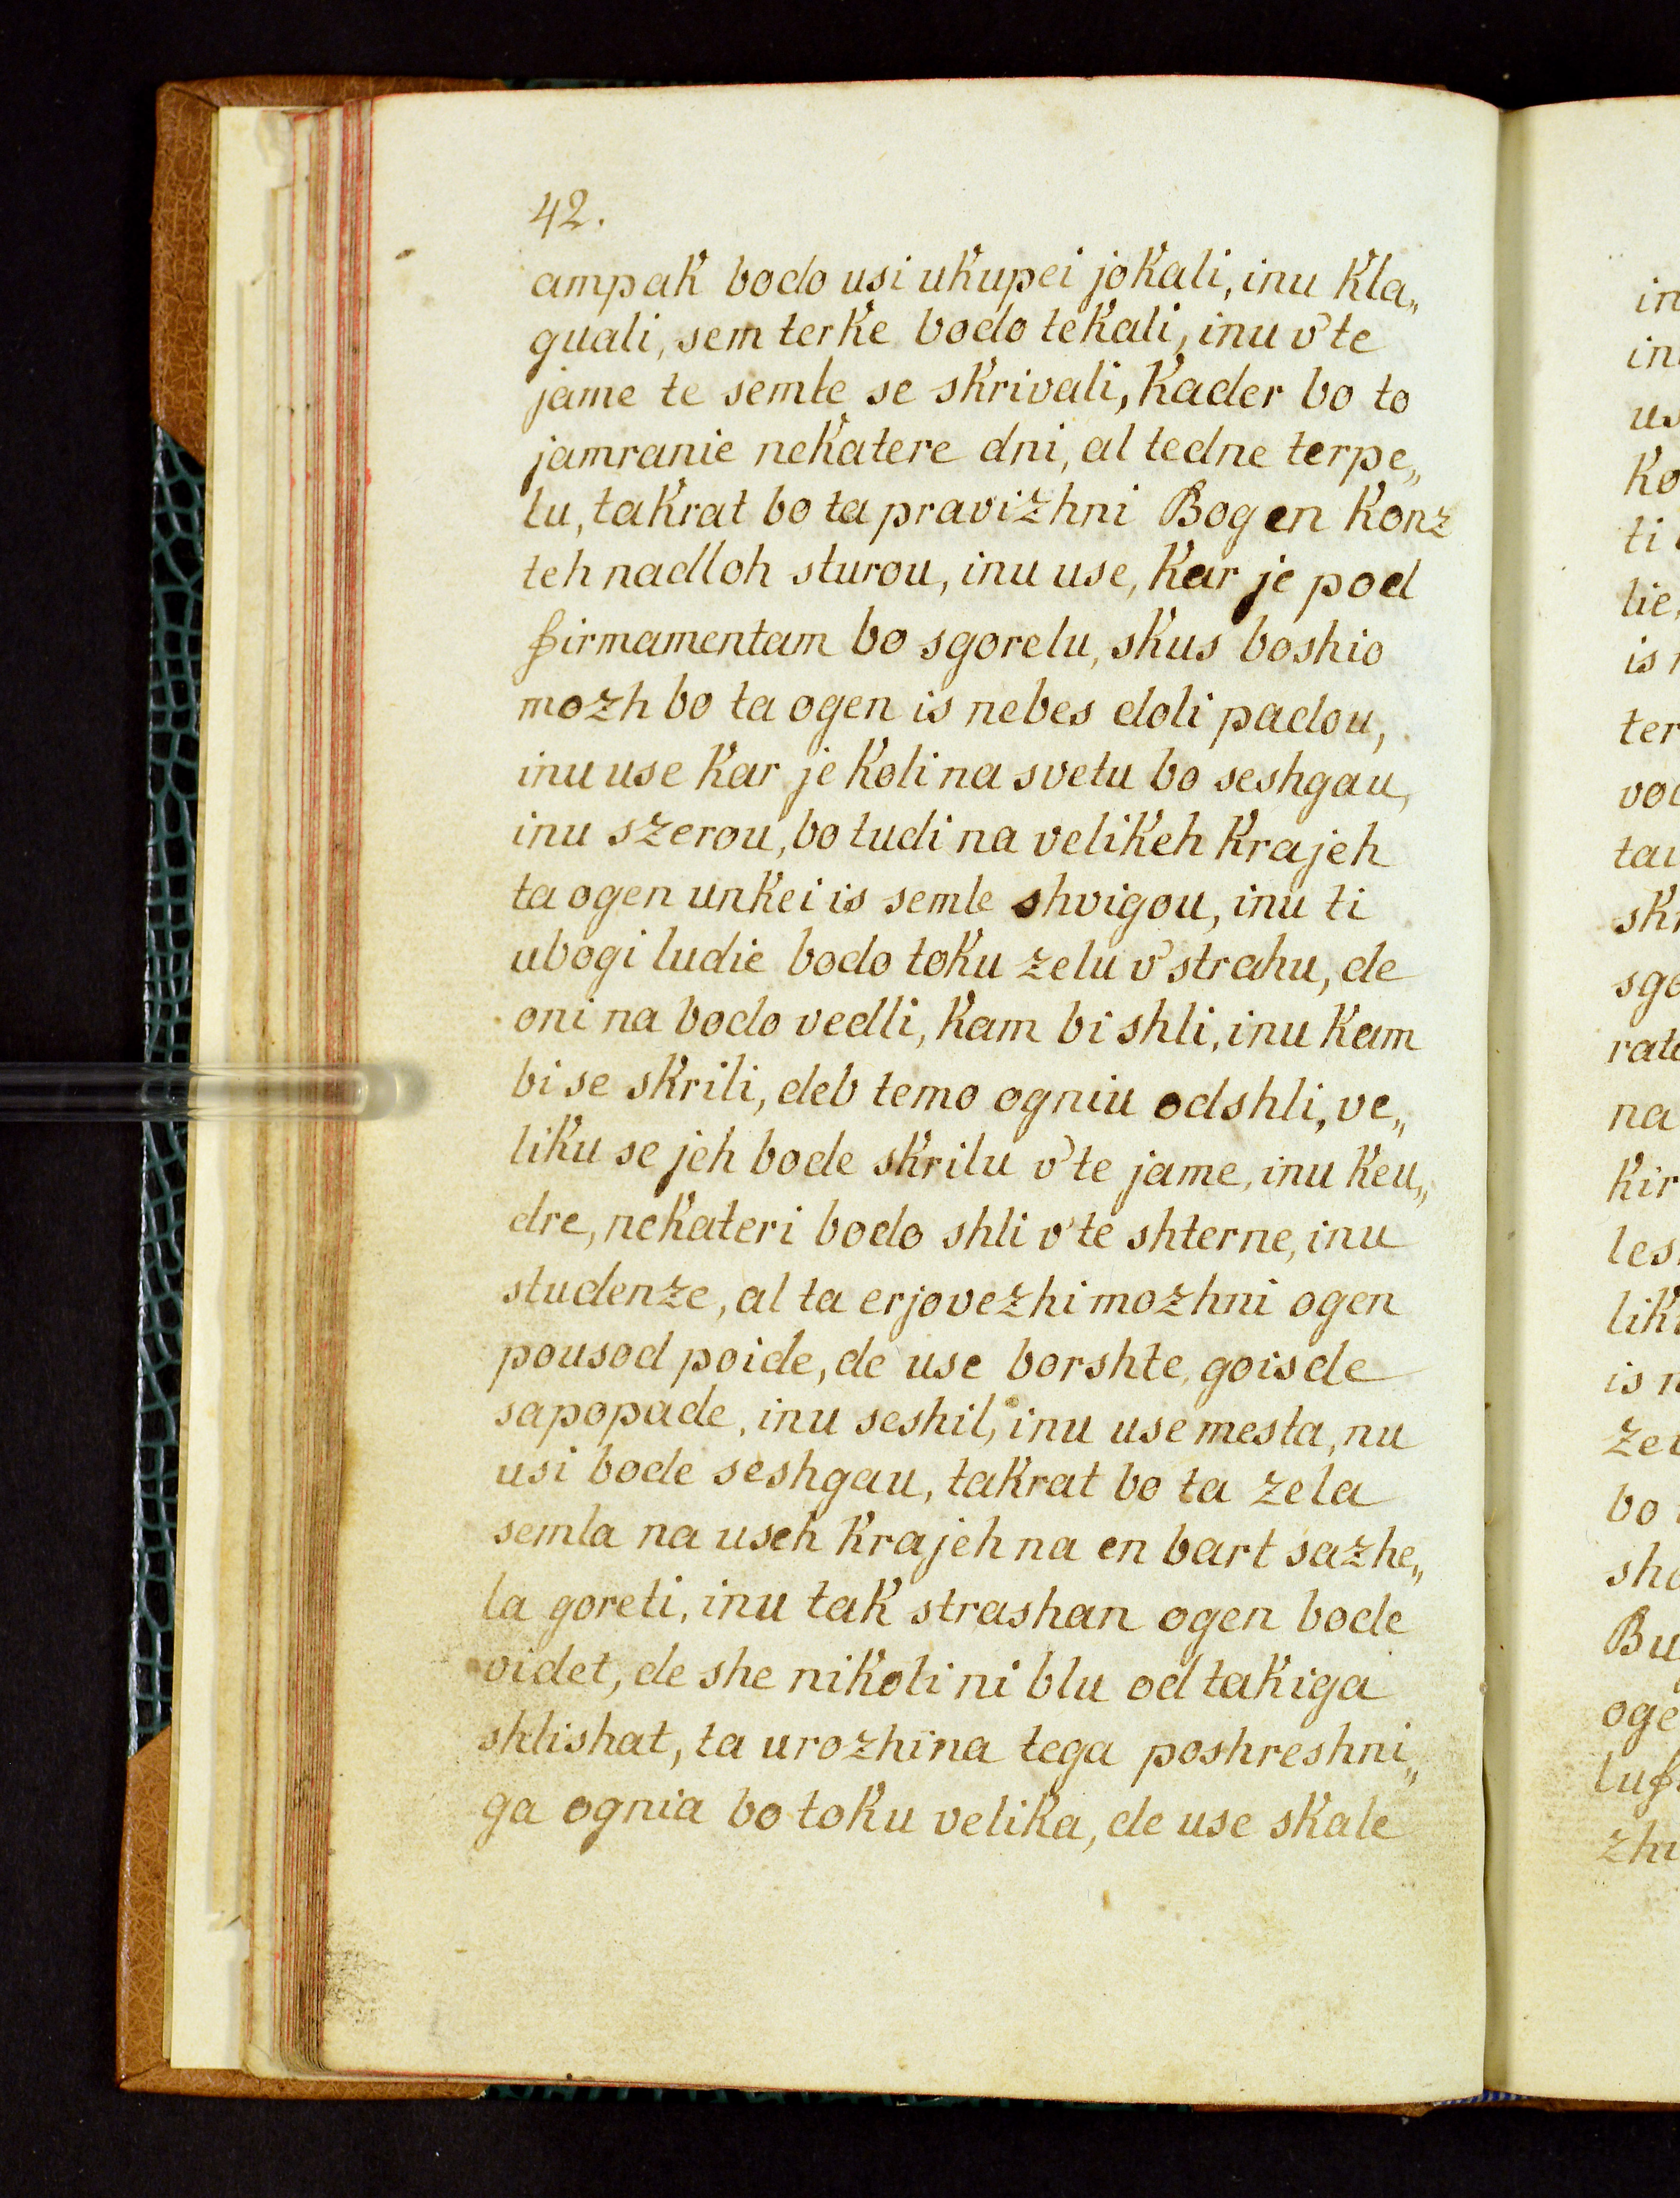 42.
ampak bodo usi ukupei jokali, inu kla„
guali, sem terke bodo tekali, inu v' te
jame te semle se skrivali, kader bo to
jamranie nekatere dni, al tedne terpe„
lu, takrat bo ta pravizhni Bog en konz
teh nadloh sturou, inu use, kar je pod
firmamentam bo sgorelu, skus boshio
mozh bo ta ogen is nebes doli padou,
inu use kar je koli na svetu bo seshgau,
inu szerou, bo tudi na velikeh krajeh
ta ogen unkei is semle shvigou, inu ti
ubogi ludie bodo toku zelu v' strahu, de
oni na bodo vedli, kam bi shli, inu kam
bi se skrili, deb temo ogniu odshli, ve„
liku se jeh bode skrilu v' te jame, inu keu„
dre, nekateri bodo shli v' te shterne, inu
studenze, al ta erjovezhi mozhni ogen
pousod poide, de use borshte, goisde
sapopade, inu seshil, inu use mesta, nu
usi bode seshgau, takrat bo ta zela
semla na useh krajeh na en bart sazhe„
la goreti, inu tak strashan ogen bode
videt, de she nikoli ni blu od takiga
shlishat, ta urozhina tega poshreshni„
ga ognia bo toku velika, de use skale
in
in
us
ko
ti
lie,
is
ter
voc
tai
sk
sgo
rat
na
kir
les
lik
is
ze
bo
sh
Bu
oge
luf
zhi